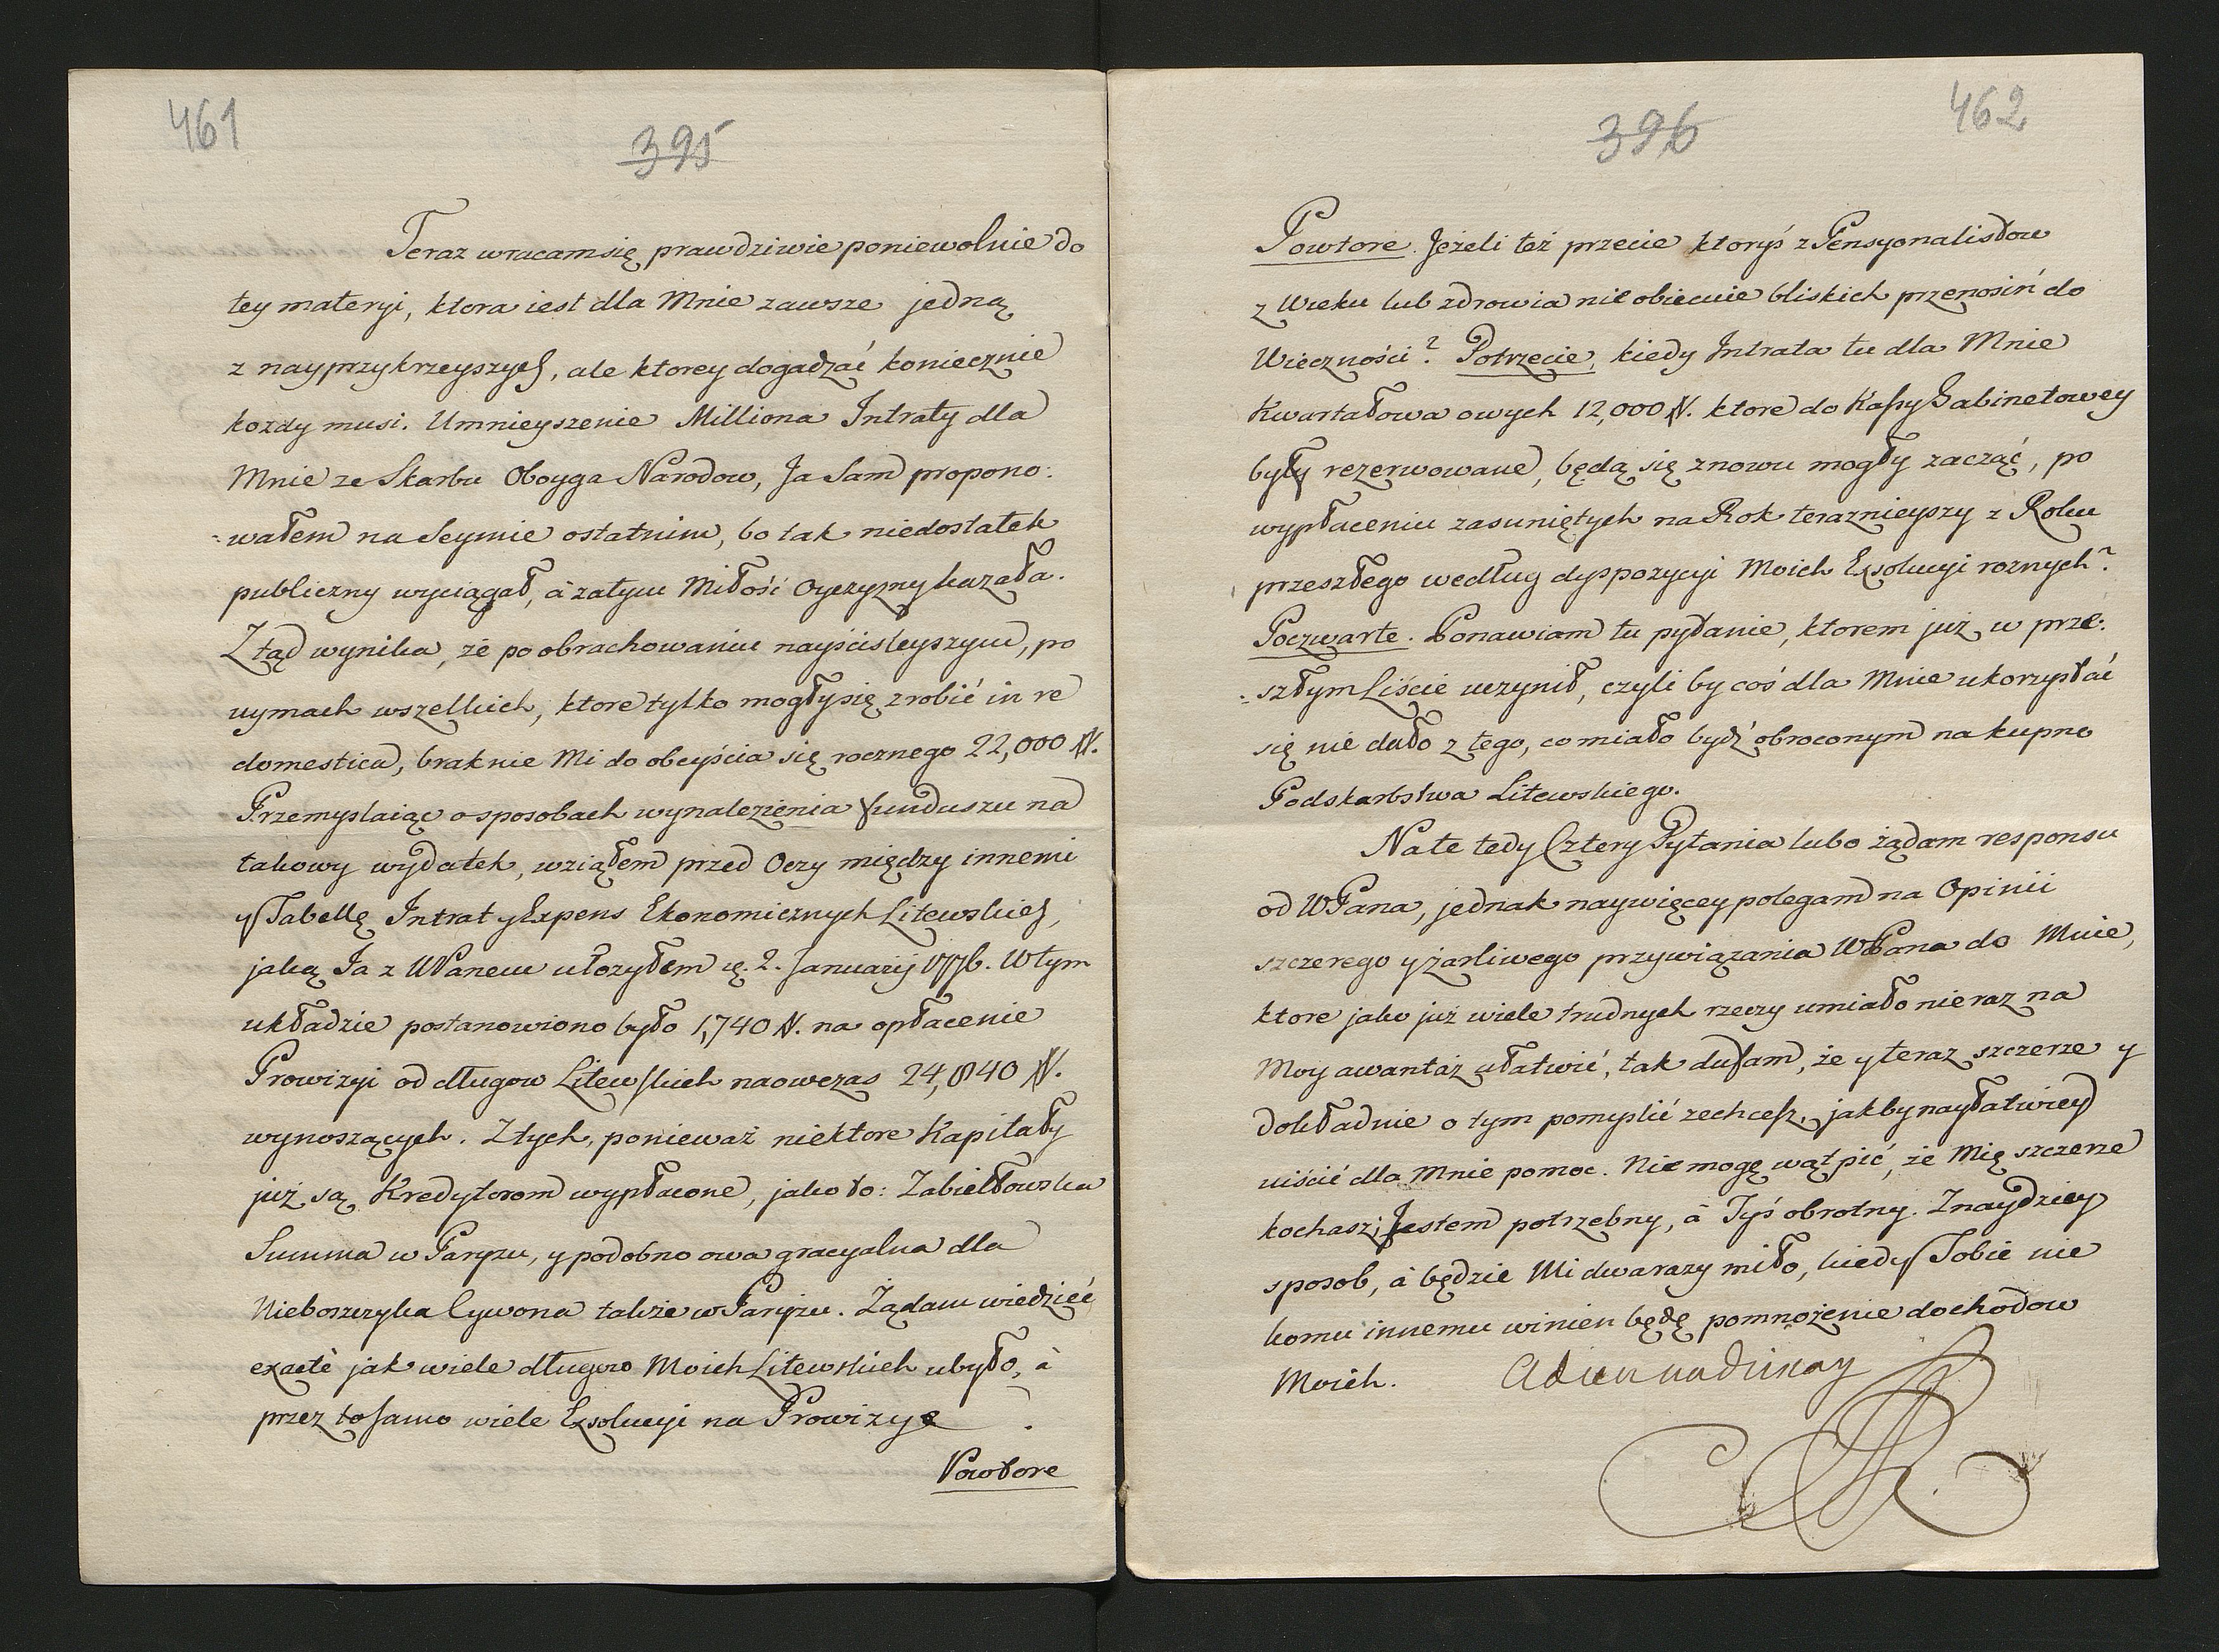 461
395
Teraz wracam się prawdziwie poniewolnie do
tey materyi, ktora iest dla Mnie zawsze jedną
z nayprzykrzeyszych, ale ktorey dogadzać koniecznie
kozdy musi. Umnieyszenie Milliona Intraty dla
Mnie ze Skarbu Oboyga Narodow, Ja Sam propono:
:wałem na Seymie ostatnim, bo tak niedostatek
publiczny wyciągał, à zatym Miłość Oyczyzny kazała.
Ztąd wynika, że po obrachowaniu nayściśleyszym, po
uymach wszelkich, ktore tylko mogły się zrobić in re
domestica, braknie Mi do obeyścia się rocznego 22,000 #.
Przemyslaiąc o sposobach wynalezienia funduszu na
takowy wydatek, wziąłem przed Oczy między innemi
y Tabellę Intrat y Expens Ekonomicznych Litewskich,
jaką Ja z WPanem ułozyłem d. 2. Januarij 1776. W tym
układzie postanowiono było 1,740 #. na opłacenie
Prowizyi od długow Litewskich naowczas 24,840 #.
wynoszących. Z tych, ponieważ niektore Kapitały
już są Kredytorom wypłacone, jako to: Zabiełłowska
Summa w Paryzu, y podobno owa gracyalna dla
Nieboszczyka Cywona także w Paryżu. Żądam wiedzieć
exactè jak wiele długow Moich Litewskich ubyło, à
przez to samo wiele Exolucyi na Prowizyą.
Powtore
396
462
Powtore. Jeżeli też przecie ktoryś z Pensyonalistow
z Wieku lub zdrowia nie obiecuie bliskich przenosiń do
Wieczności? Potrzecie, kiedy Intrata tu dla Mnie
Kwartałowa owych 12,000 #. ktore do Kassy Gabinetowey
były rezerwowane, będą się znowu mogły zacząć, po
wypłaceniu zasuniętych na Rok teraznieyszy z Roku
przeszłego według dyspozycyi Moich Exolucyi roznych?
Poczwarte. Ponawiam tu pytanie, ktorem już w prze:
:szłym Liście uczynił, czyli by coś dla Mnie ukorzystać
się nie dało z tego, co miało bydź obroconym na kupno
Podskarbstwa Litewskiego.
Na te tedy Cztery Pytania lubo żądam responsu
od WPana, jednak naywięcey polegam na Opinii
szczerego y żarliwego przywiązania WPana do Mnie,
ktore jako już wiele trudnych rzeczy umiało nieraz na
Moy awantaż ułatwić, tak dufam, że y teraz szczerze y
dokładnie o tym pomyslić zechcesz, jakby nayłatwiey
uiścić dla Mnie pomoc. Nie mogę wątpić, że Mię szczerze
kochasz; Jestem potrzebny, à Tyś obrotny. Znaydziey
sposob, à będzie Mi dwa razy miło, kiedy Tobie nie
komu innemu winien będę pomnożenie dochodow
Moich.
SAR